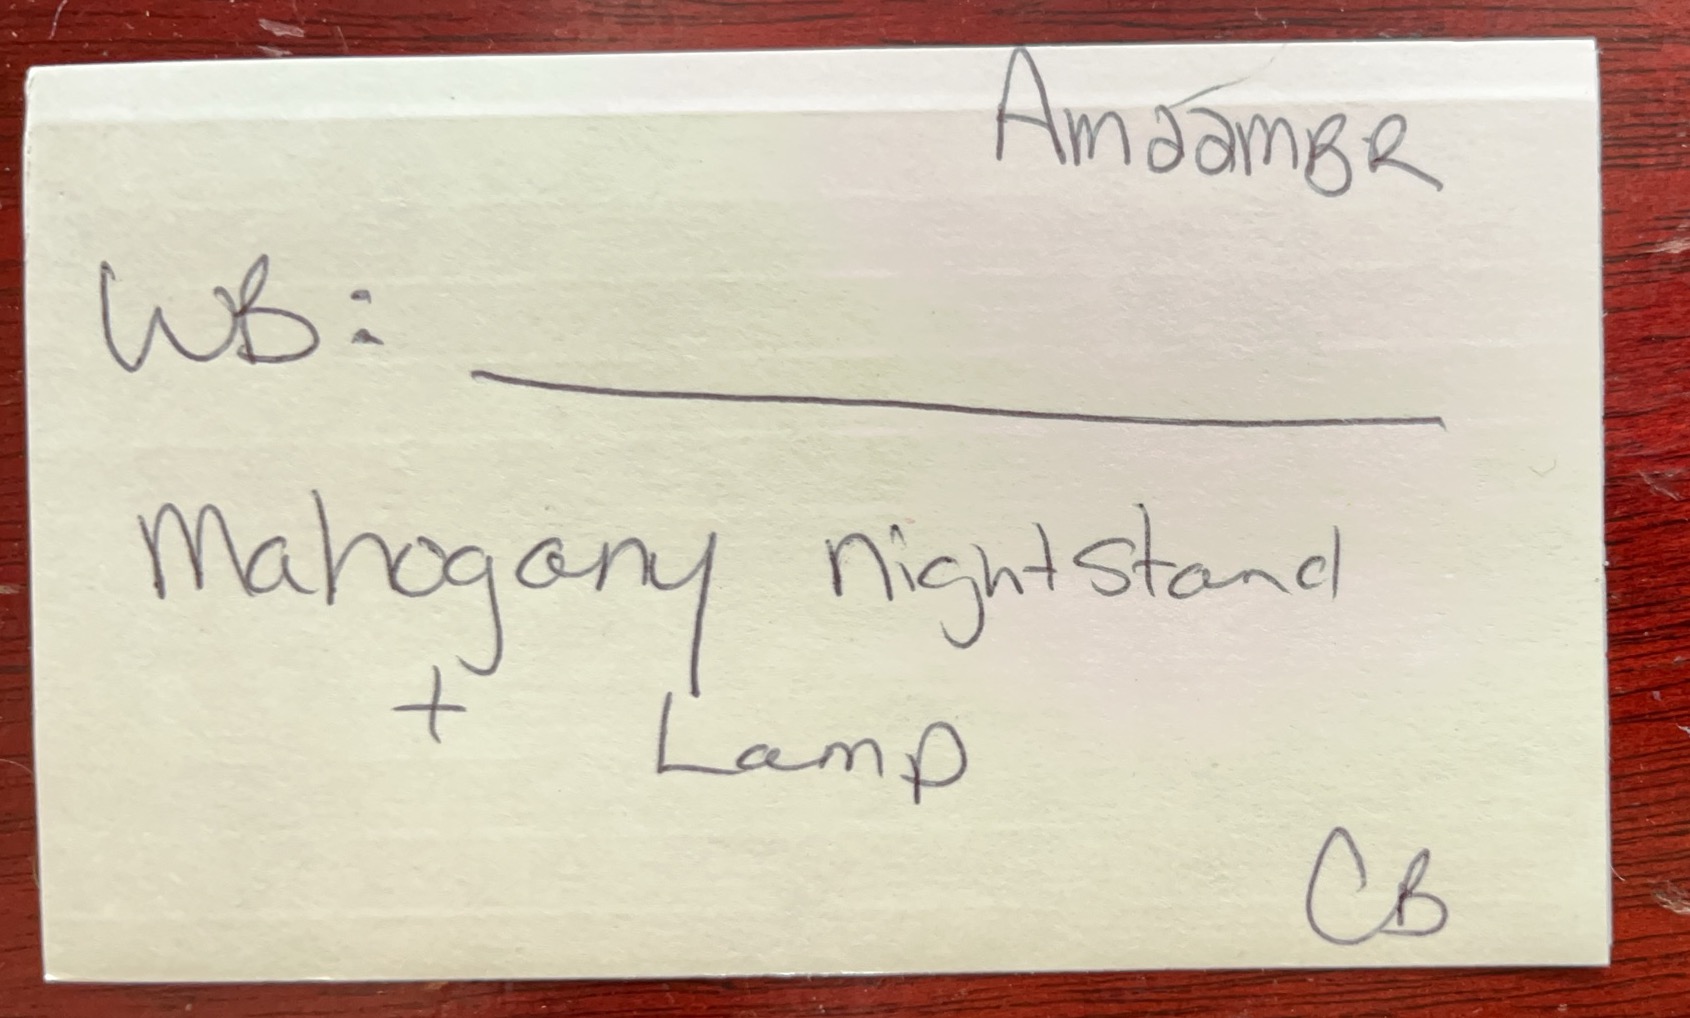 AmaamBR
WB: ____________
Mahogany nightstand
+ Lamp
CB